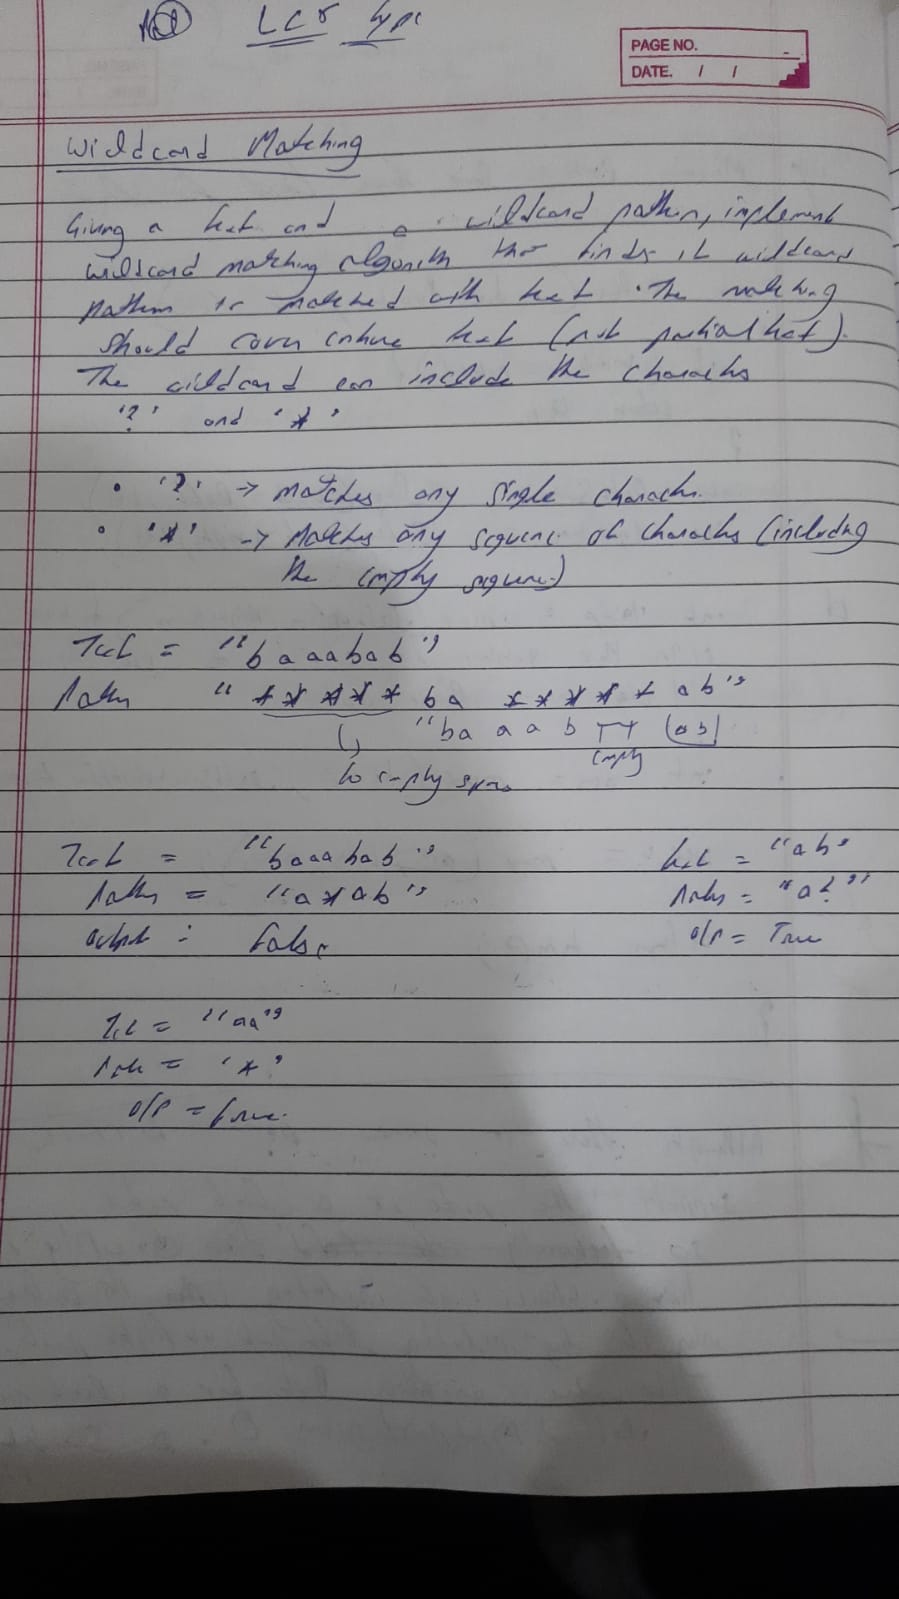 LCS type
PAGE NO.
DATE. / /
Wildcard Matching
Giving a text and a wildcard pattern, implement
wildcard matching algorith that finds if wildcard
pattern is matched with text. The matching
should cover entire text (not partial text).
The wildcard can include the characters
'?' and '*'
• '?' -> matches any single character.
• '*' -> Matches any sequence of characters (including
the empty sequence)
Text = "baaabab"
Pattern "*****ba*****ab"
"ba a a b (ab)
empty
to empty space
Text = "baaabab"
Pattern = "a*ab"
output : false
text = "ab"
Pattern = "a?"
o/p = True
Text = "aa"
Pattern = '*'
o/p = true.